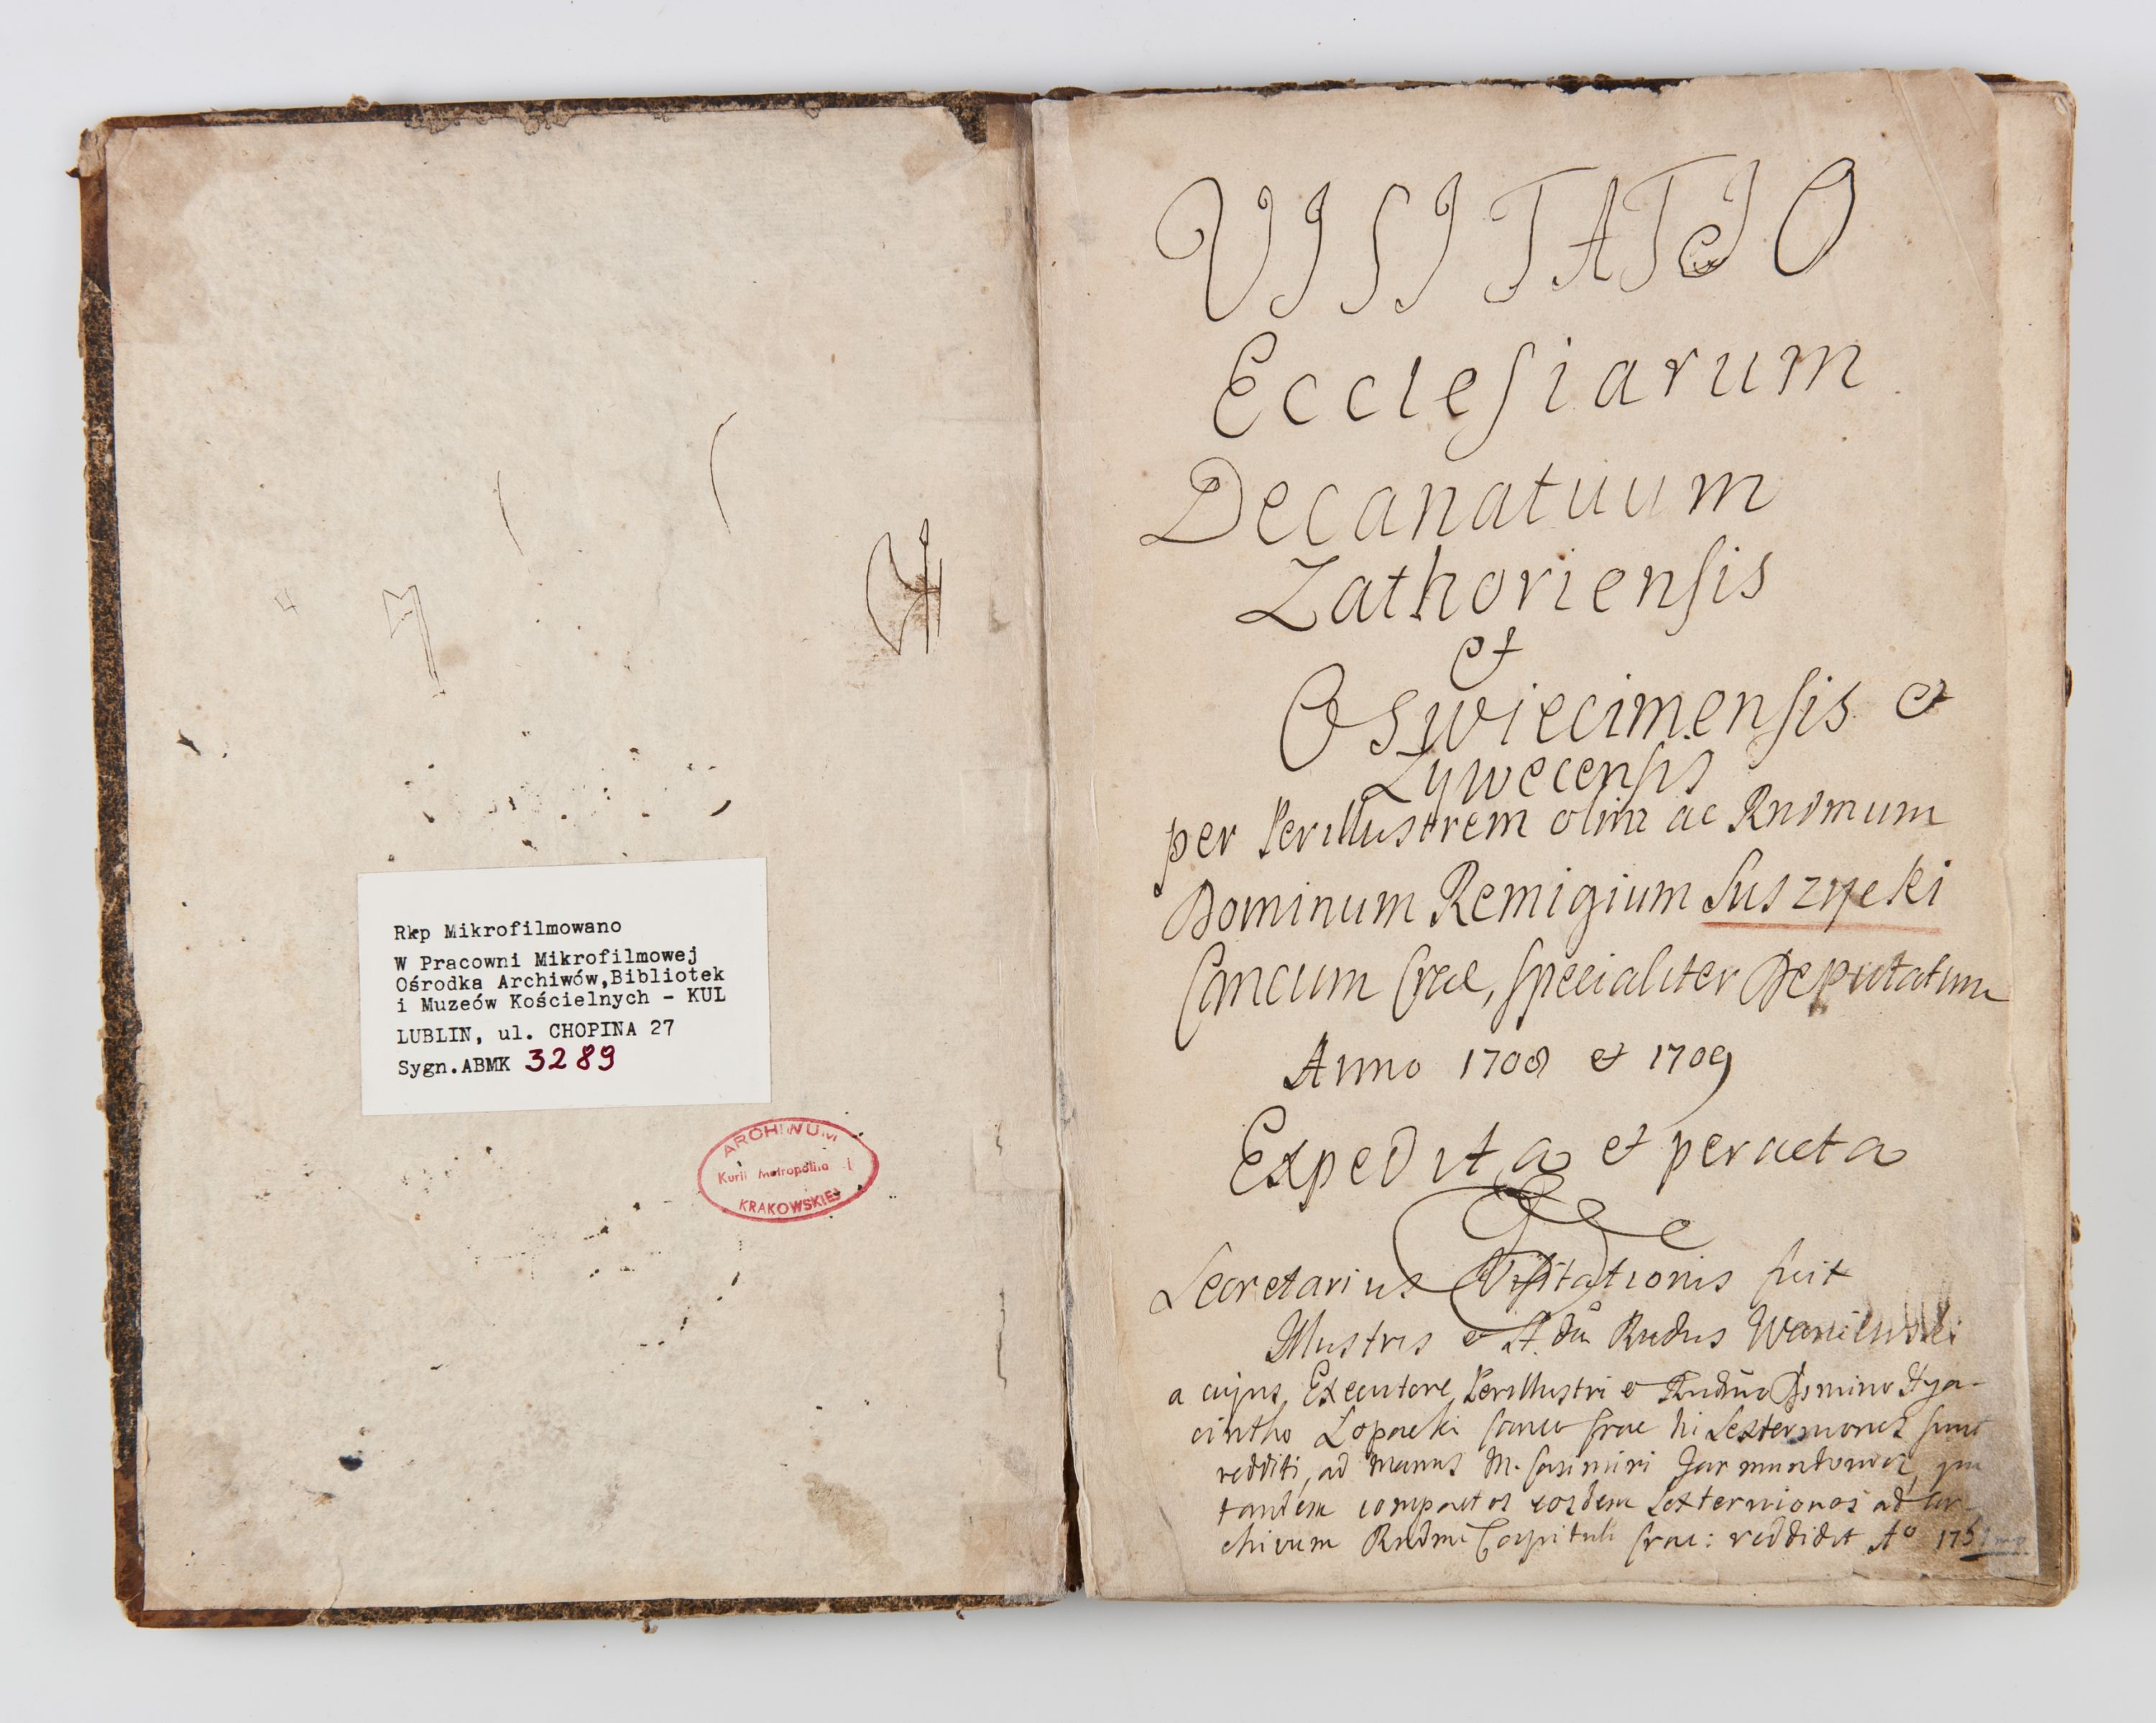 Rkp Mikrofilmowano
W Pracowni Mikrofilmowej
Ośrodka Archiwów,Bibliotek
i Muzeów Kościelnych - KUL
LUBLIN, ul. CHOPINA 27
Sygn.ABMK 3289
ARCHIWUM
Kurii Metropolita
KRAKOWSKIEJ
VISITATIO
Ecclesiarum
Decanatuum
Zathoriensis
et
Oswiecimensis et
Zywecensis
per Perillustrem olim ac Rndmum
Dominum Remigium Suszycki
Cancum Crac, specialiter Deputatum
Anno 1708 et 1709
Expedita et peracta
Secretarius Visitationis fuit
Illustris et A. Rndus
a cujus Executore Perillustri et Rndmo Domino Hya-
cintho Lopacki Crac hi Sexterniones sunt
redditi, ad manus M. Casimiri qui
tandem compactos eosdem Sexterniones ad Ar-
chivum Rndmi Capituli Crac: reddidit Aº